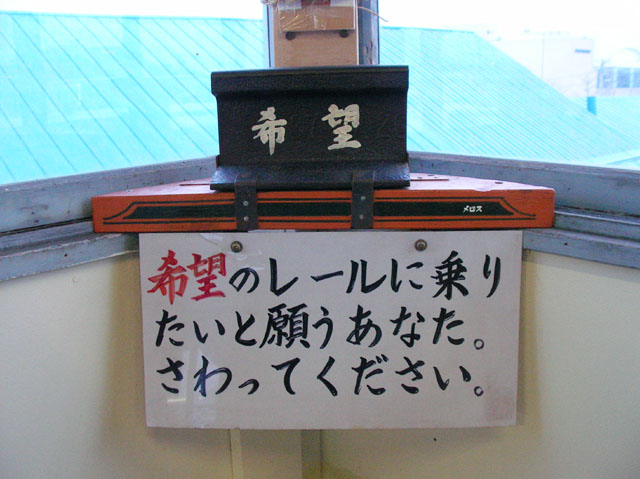 希望
メロス
希望のレールに乗り
たいと願うあなた。
さわってください。